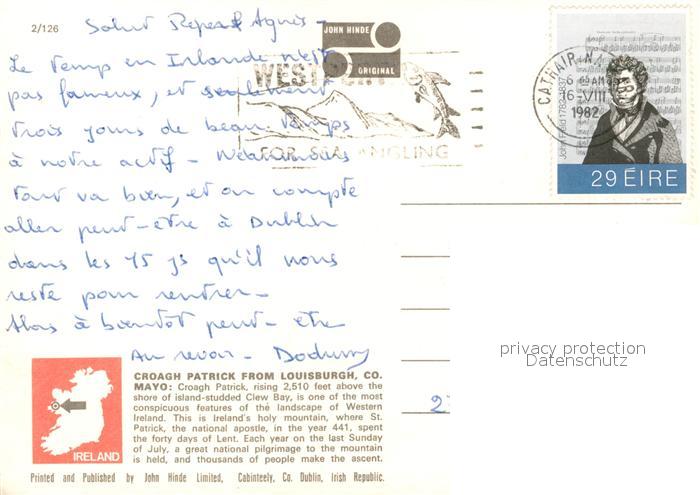 2/126
Salut Agnès -
JOHN HINDE
ORIGINAL
Le temps en Irlande n'est
pas fameux, et seulement
trois jours de beau temps
à notre actif - Néanmoins
tout va bien, et on compte
aller peut-être à Dublin
dans les 15 js qu'il nous
reste pour rentrer -
Alors à bientôt peut-être
Au revoir -
WESTPORT
FOR SEA ANGLING
CATHAIR NA MART
6-VIII
1982
John Field 1782-1837
29 ÉIRE
privacy protection
Datenschutz
2
IRELAND
CROAGH PATRICK FROM LOUISBURGH, CO.
MAYO: Croagh Patrick, rising 2,510 feet above the
shore of island-studded Clew Bay, is one of the most
conspicuous features of the landscape of Western
Ireland. This is Ireland's holy mountain, where St.
Patrick, the national apostle, in the year 441, spent
the forty days of Lent. Each year on the last Sunday
of July, a great national pilgrimage to the mountain
is held, and thousands of people make the ascent.
Printed and Published by John Hinde Limited, Cabinteely, Co. Dublin, Irish Republic.